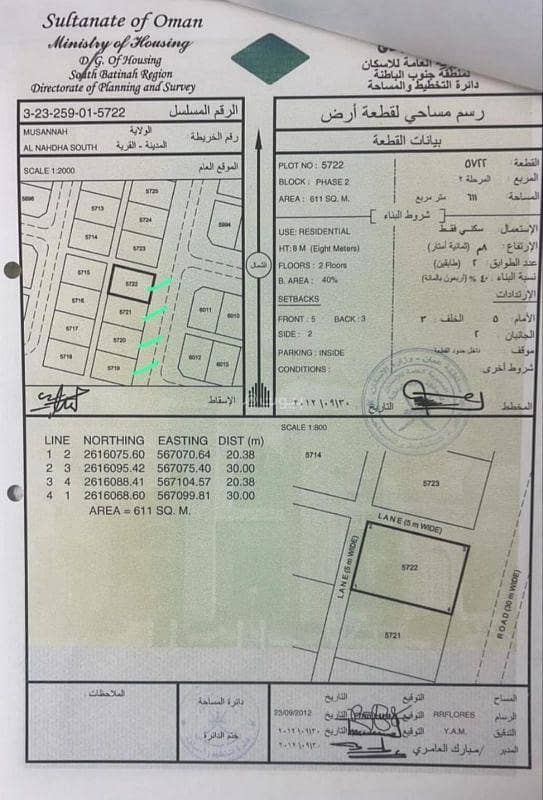 Sultanate of Oman
Ministry of Housing
D/G. Of Housing
South Batinah Region
Directorate of Planning and Survey
العامة للاسكان
لمنطقة جنوب الباطنة
دائرة التخطيط والمساحة
3-23-259-01-5722 الرقم المسلسل
MUSANNAH الولاية
رقم الخريطة
AL NAHDHA SOUTH المدينة - القرية
SCALE 1:2000 الموقع العام
5725
5698
5713
5724
5714
5723
5994
5715
5722
5716
5721
6011
6010
5717
5720
5718
5719
6012
6013
الشمال
الإسقاط
رسم مساحي لقطعة أرض
بيانات القطعة
PLOT NO : 5722 القطعة : ٥٧٢٢
BLOCK : PHASE 2 المربع : المرحلة ٢
AREA : 611 SQ. M. المساحة : ٦١١ متر مربع
شروط البناء
USE: RESIDENTIAL الإستعمال : سكني فقط
HT: 8 M (Eight Meters) الإرتفاع : ٨م (ثمانية أمتار)
FLOORS : 2 Floors عدد الطوابق : ٢ (طابقين)
B. AREA : 40% نسبة البناء : ٤٠ % (أربعون بالمائة)
SETBACKS الإرتدادات
FRONT : 5 BACK : 3 الأمام : ٥ الخلف : ٣
SIDE : 2 الجانبان : ٢
PARKING : INSIDE موقف : داخل حدود القطعة
CONDITIONS : شروط أخرى
المخطط التاريخ ٢٠١٢/٠٩/٣٠
SCALE 1:800
LINE NORTHING EASTING DIST (m)
1 2 2616075.60 567070.64 20.38
2 3 2616095.42 567075.40 30.00
3 4 2616088.41 567104.57 20.38
4 1 2616068.60 567099.81 30.00
AREA = 611 SQ. M.
5714
5723
LANE (5 m WIDE)
LANE (5 m WIDE)
5722
ROAD (30 m WIDE)
5721
الملاحظات :
دائرة المساحة
ختم الدائرة
المساح التوقيع التاريخ
الرسام RRFLORES التوقيع التاريخ 23/09/2012
التدقيق Y.A.M. التوقيع التاريخ ٢٠١٢/٠٩/٣٠
المدير /مبارك العامري ٢٠١٢/٠٩/٣٠